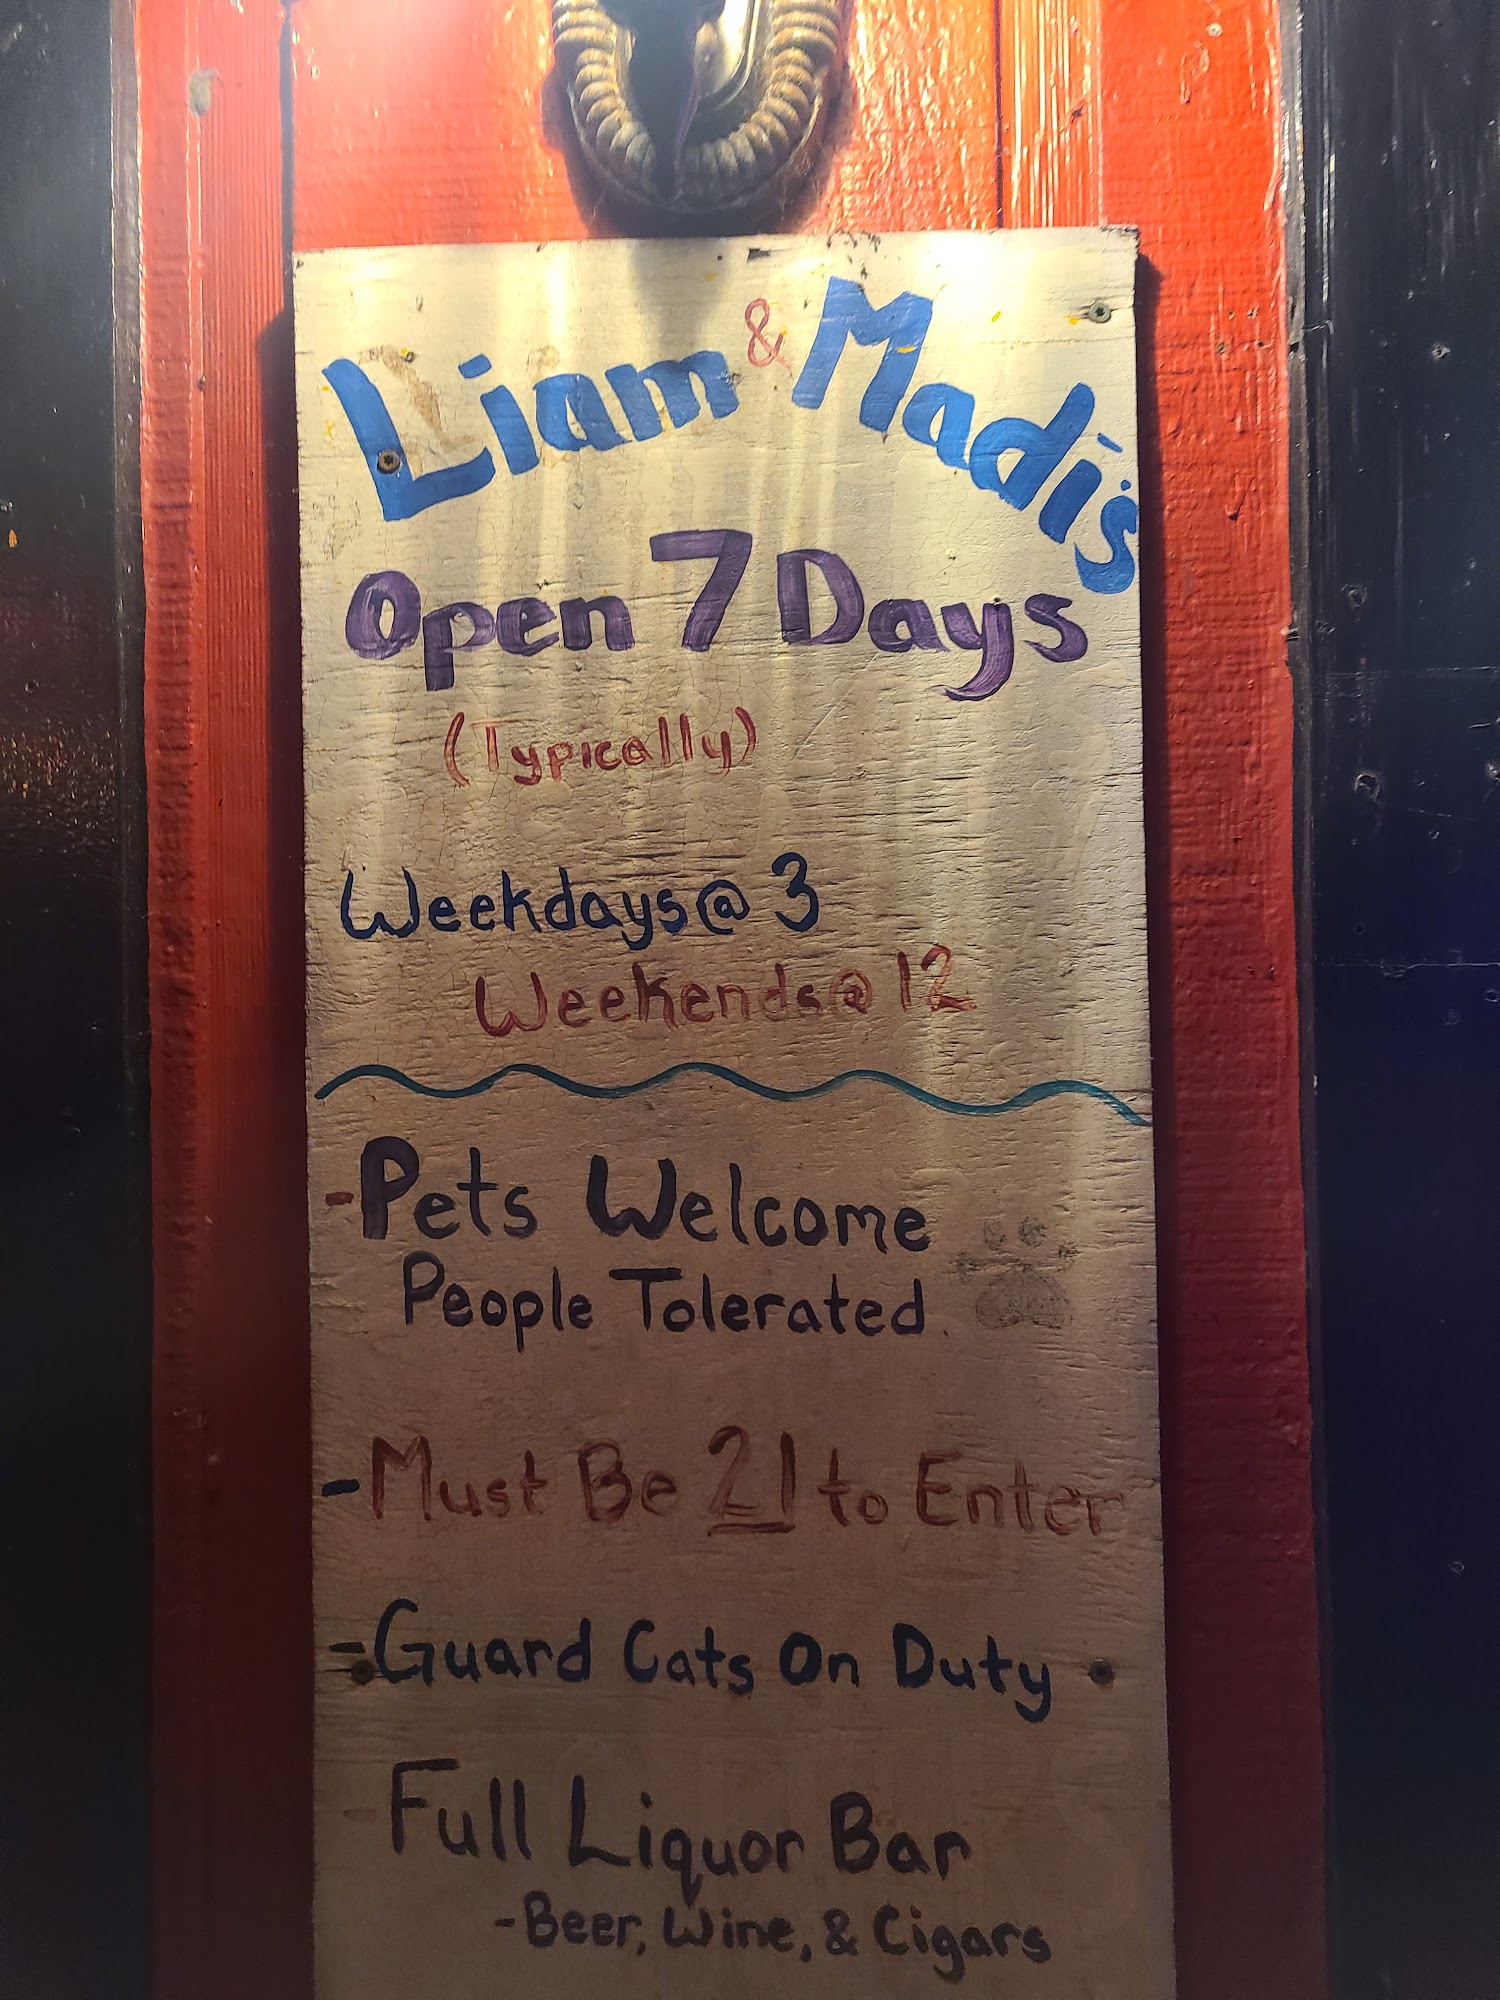 Liam & Madi's
Open 7 Days
(Typically)
Weekdays @ 3
Weekends @ 12
-Pets Welcome
People Tolerated.
-Must Be 21 to Enter
-Guard Cats On Duty
-Full Liquor Bar
-Beer, Wine, & Cigars